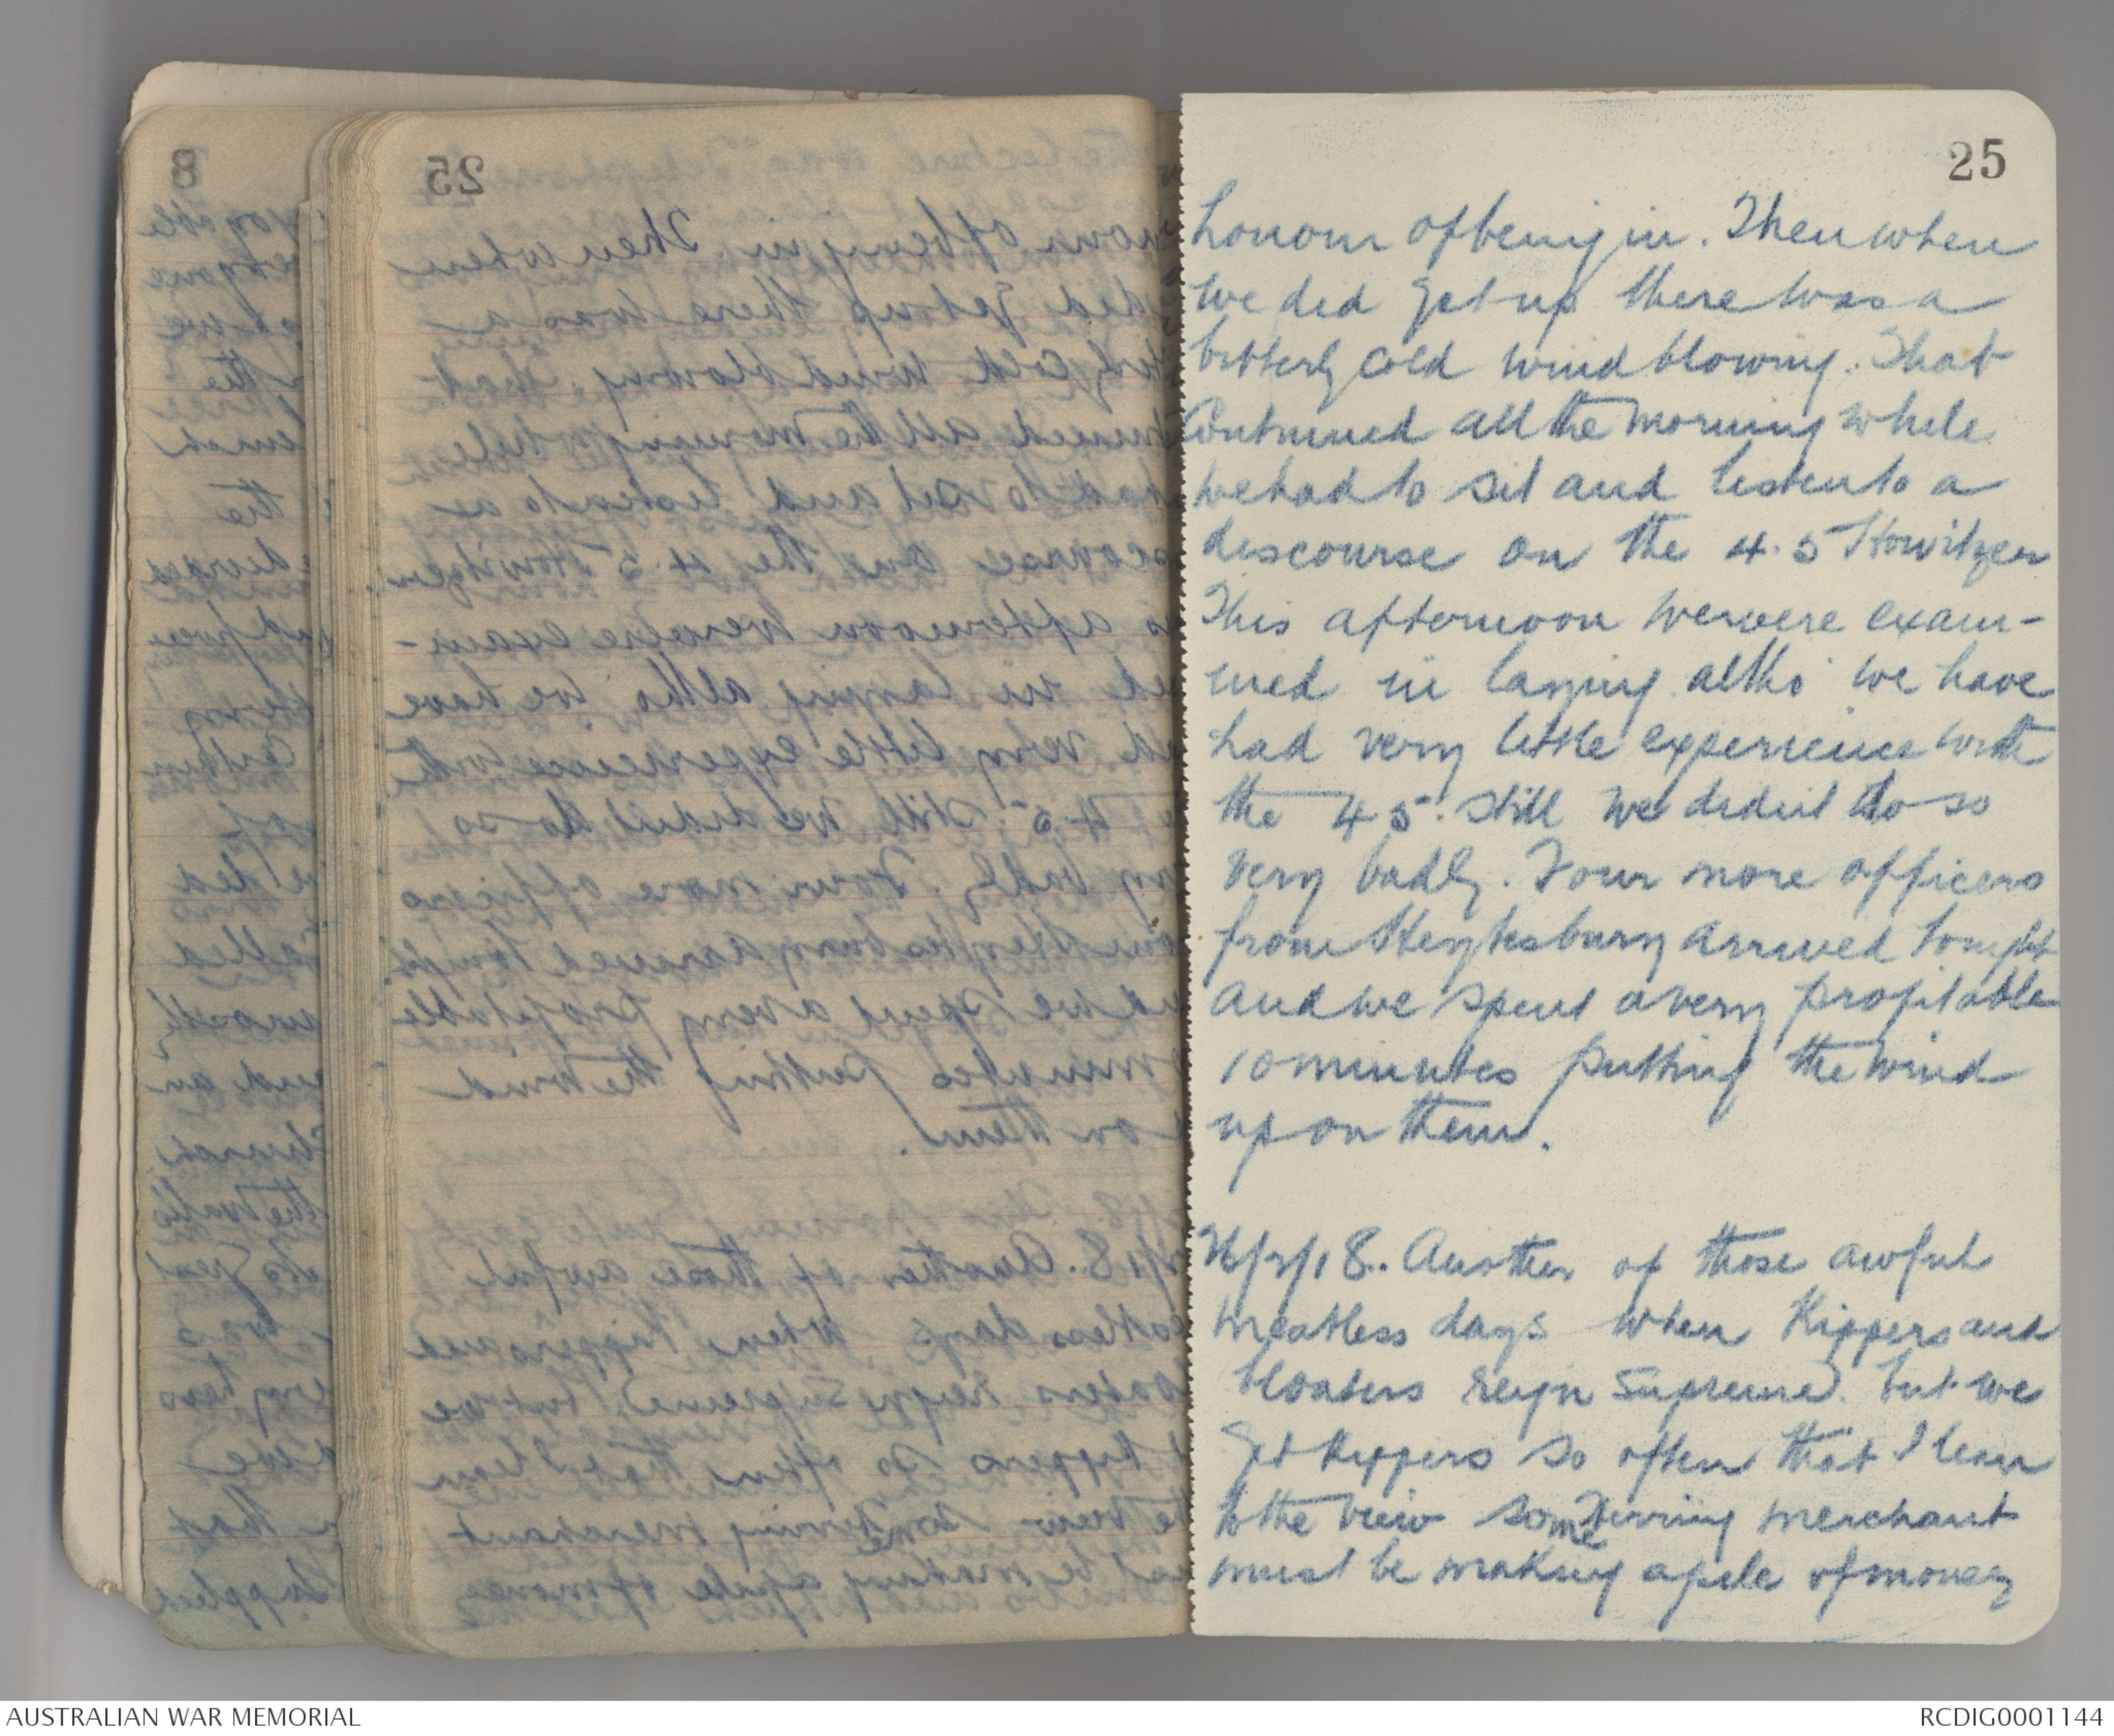 25
honour of being in. Then when
we did get up there was a
bitterly cold wind blowing. That
Continued all the morning while
we had to sit and listen to a
discourse on the 4.5 Howitzer
This afternoon we were exam-
ined in laying altho' we have
had very little experience with
the 4.5. Still we didnt do so
very badly. Four more officers
from Heytesbury arrived tonight
and we spent a very profitable
10 minutes putting the wind
up on them.
/2/18. Another of those awful
meatless days when Kippers and
bloaters reign supreme. but we
get Kippers so often that I lean
to the view some merchant
must be making a pile of money
AUSTRALIAN WAR MEMORIAL
RCDIG0001144